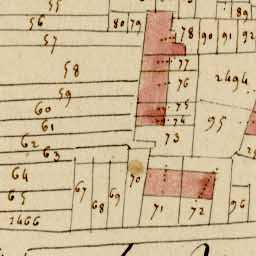 55
89
56
80 79
78 90 91 92
57
77
58
76
2494
59
75
60
74
95
61
73
62
63
64
70
67
69
65
68
71
72
96
2466